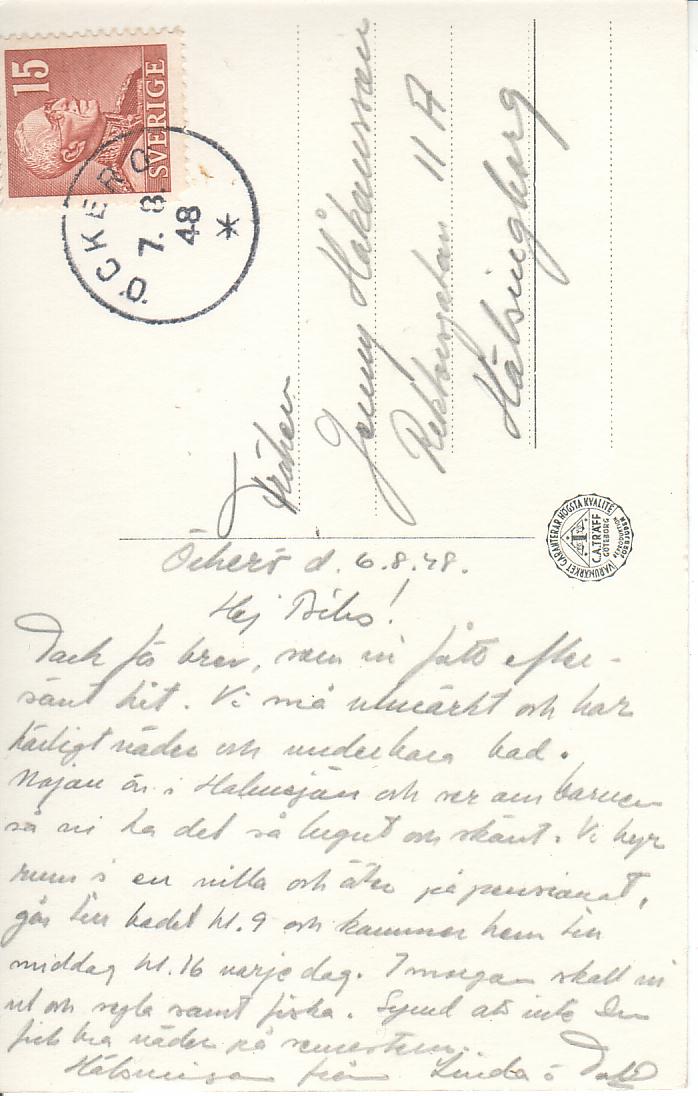 15
SVERIGE
ÖCKERÖ
7. 8.
48
*
Fröken
Jenny Håkansson
11 A
Hälsingborg
VARUMÄRKET GARANTERAR HÖGSTA KVALITÉ
C.A. TRÄFF
GÖTEBORG
Öckerö d. 6.8.48.
Hej
Tack för brev, som vi fått efter-
sänt hit. Vi må utmärkt och har
härligt väder och underbara bad.
är i och ser om barnen
så vi ha det så lugnt och skönt. Vi hyr
rum i en villa och äter på pensionat,
går till badet kl. 9 och kommer hem till
middag kl. 16 varje dag. I morgon skall vi
ut och segla samt fiska. Synd att inte Du
fick bra väder på semestern.
Hälsningar från Linda o